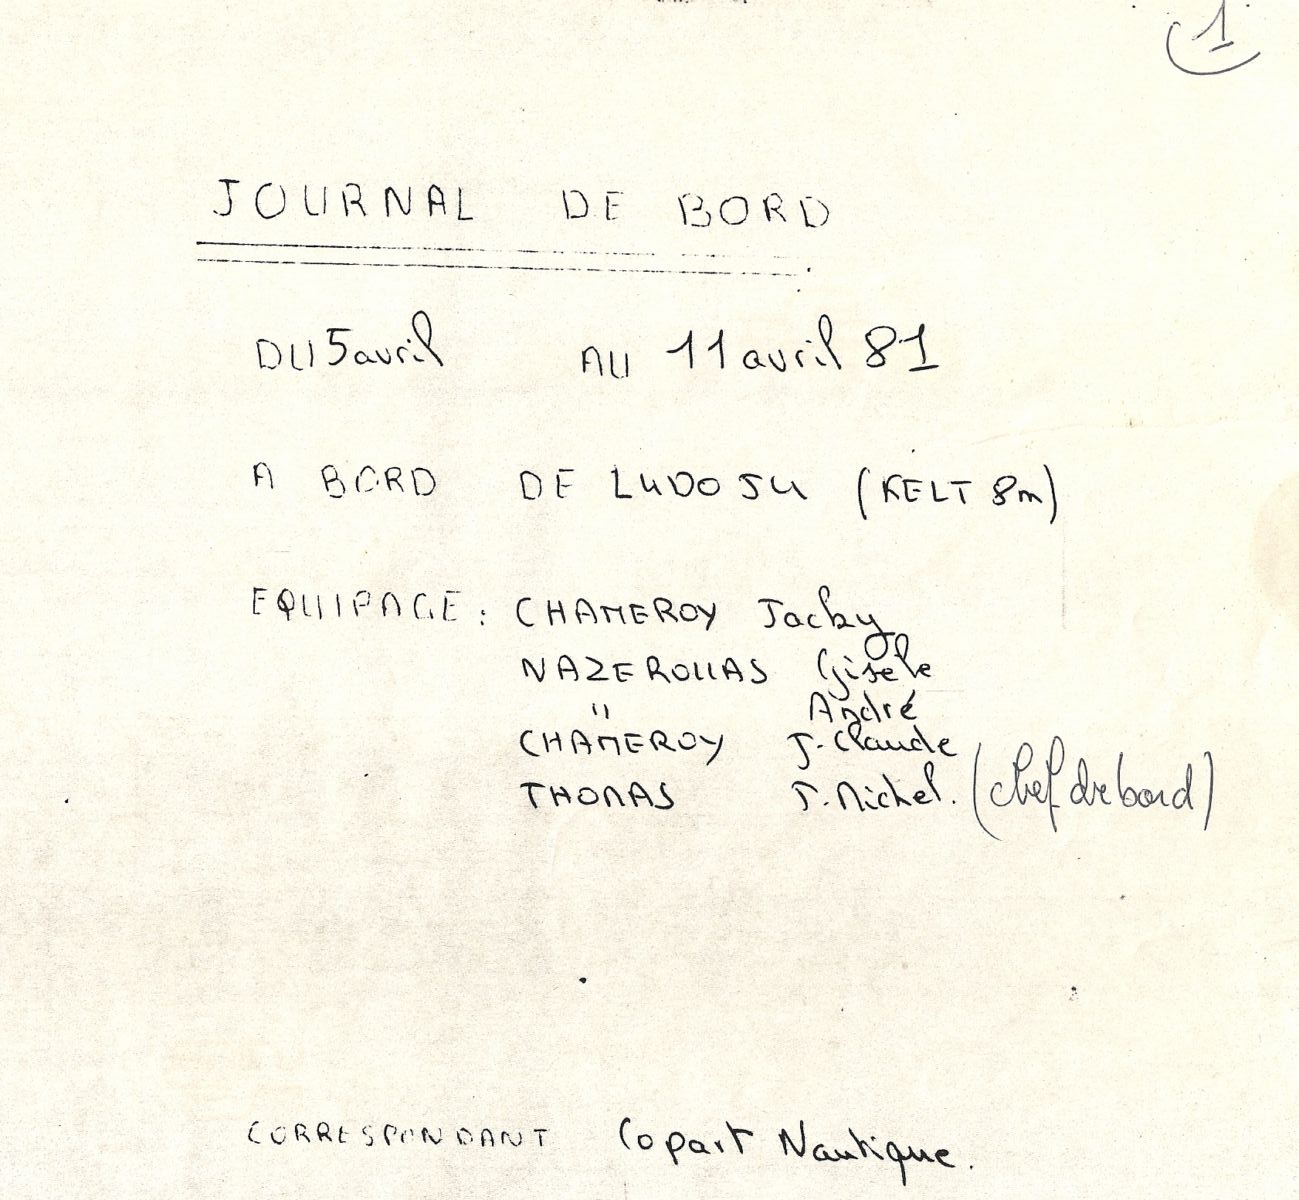 1
JOURNAL DE BORD
DU 5 avril AU 11 avril 81
A BORD DE LUDOJU (KELT 8m)
EQUIPAGE : CHAMEROY Jacky
NAZEROUAS Gisele
" André
CHAMEROY J. Claude
THOMAS J. Michel. (chef de bord)
CORRESPONDANT Copart Nautique.